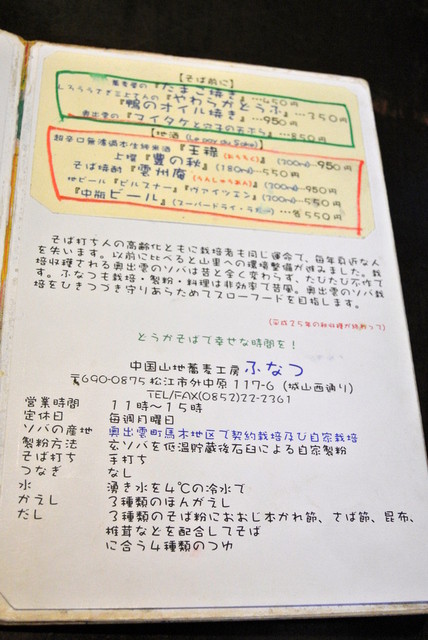 【そば前に】
『たまご焼き』…450円
『やわらかどうふ』…350円
『鴨のオイル焼き』…950円
奥出雲の『マイタケと穴子の天ぷら』…850円
【地酒】
超辛口無濾過本生純米酒『王禄』(200ml)…950円
上燗『豊の秋』(180ml)…550円
そば焼酎『雲州庵』(200ml)…950円
地ビール『ピルスナー』『ヴァイツェン』(300ml)…550円
『中瓶ビール』(スーパードライ・ラガー)…各550円
そば打ち人の高齢化とともに栽培者も同じ運命で、毎年身近な人
を失います。以前に比べると山里への環境整備が進みました。栽
培収穫される奥出雲のソバは昔と全く変わらず、たびたび不作で
す。ふなつも栽培・製粉・料理は非効率で苦風。奥出雲のソバ栽
培をひきつづき守りあらためてスローフードを目指します。
(平成25年の秋収穫が終わって)
どうかそばで幸せな時間を！
中国山地蕎麦工房 ふなつ
〒690-0875 松江市外中原117-6 (城山西通り)
TEL/FAX(0852)22-2361
営業時間 11時～15時
定休日 毎週月曜日
ソバの産地 奥出雲町馬木地区で契約栽培及び自家栽培
製粉方法 玄ソバを低温貯蔵後石臼による自家製粉
そば打ち 手打ち
つなぎ なし
水 湧き水を4℃の冷水で
かえし 3種類のほんがえし
だし 3種類のそば粉におおじ本かれ節、さば節、昆布、
椎茸などを配合してそば
に合う4種類のつゆ